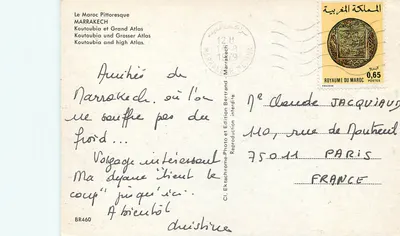 Le Maroc Pittoresque
MARRAKECH
Koutoubia et Grand Atlas
Koutoubia und Grosser Atlas
Koutoubia and high Atlas
المملكة المغربية
0,65
ROYAUME DU MAROC
POSTES
Amitiés de
Marrakech où l'on
ne souffre pas du
froid...
Voyage intéressant
Ma dyane "tient le
coup" jusqu'ici.
A bientôt
Christine
Cl. Ektachrome-Photo et Edition Bertrand - Marrakech
Reproduction interdite
Me Claude JACQUIAUD
110, rue de Montreuil
75011 PARIS
FRANCE
BR460